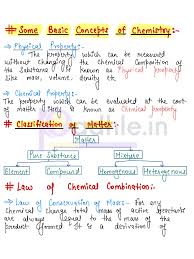 # Some Basic Concepts of Chemistry:-
→ Physical Property:-
The property which can be measured
without changing the Chemical Composition of
the Substance is known as Physical property
like mass, volume, density etc.
→ Chemical Property:-
The property which can be evaluated at the cost
of matter itself is known as Chemical property
# Classification of Matter:-
Matter
Pure Substance Mixture
Element Compound Homogeneous Heterogeneous
# Law of Chemical Combination:-
→ Law of Conservation of Mass:- For any
Chemical Change total mass of active reactants
are always equal to the mass of the
product formed. It is a derivation of